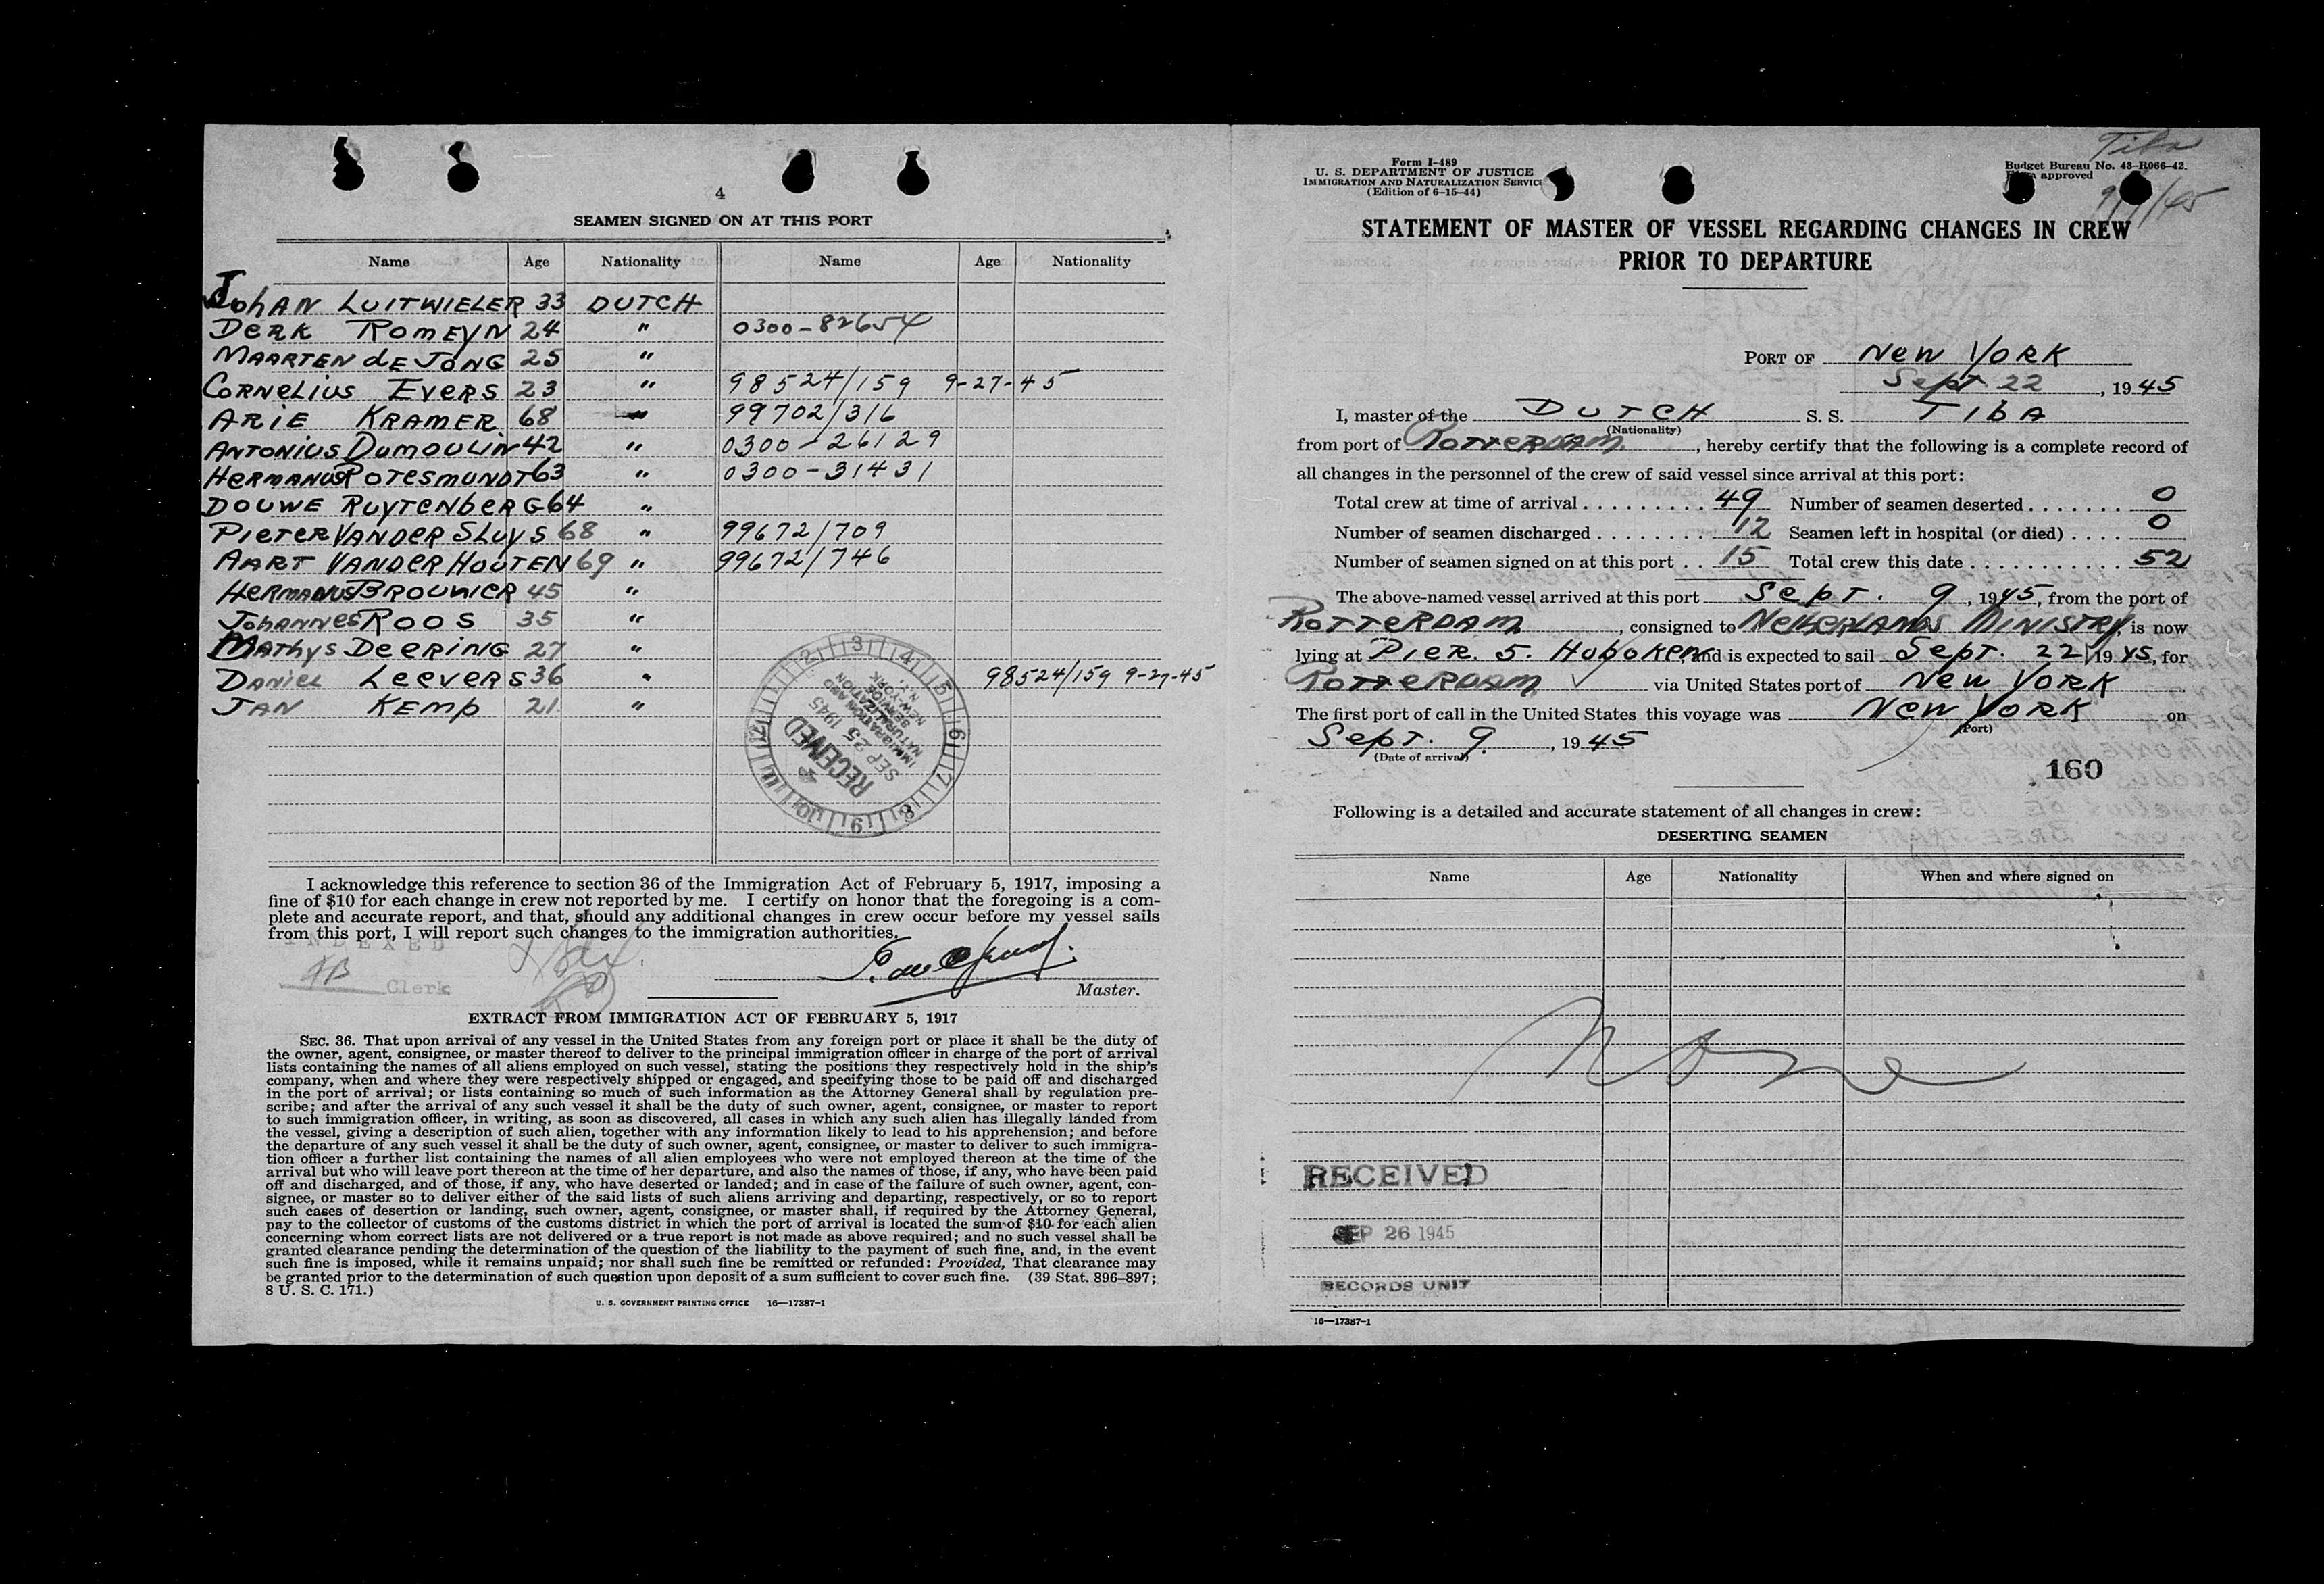 4
SEAMEN SIGNED ON AT THIS PORT
Name Age Nationality Name Age Nationality
JohAN LUITWIELER 33 DUTCH
DERK ROMEYN 24 " 0300-82654
MAARTEN dE JONG 25 "
CORNELIUS EVERS 23 " 98524/159 9-27-45
ARIE KRAMER 68 " 99702/316
ANTONIUS DUMOULIN 42 " 0300-26129
HERMANUS POTESMUNDT 63 " 0300-31431
DOUWE RUYTENbERG 64 "
PIETER VANDER SLUYS 68 " 99672/709
AART VANDER HOUTEN 69 " 99672/746
HERMANUS BROUWER 45 "
JOHANNES ROOS 35 "
MATHYS DEERING 27 "
DANIEL LEEVERS 36 " 98524/159 9-27-45
JAN KEMP 21 "
RECEIVED
SEP 25 1945
IMMIGRATION AND
NATURALIZATION
SERVICE
NEW YORK
N.Y.
I acknowledge this reference to section 36 of the Immigration Act of February 5, 1917, imposing a
fine of $10 for each change in crew not reported by me. I certify on honor that the foregoing is a com-
plete and accurate report, and that, should any additional changes in crew occur before my vessel sails
from this port, I will report such changes to the immigration authorities.
INDEXED
Clerk
Master.
EXTRACT FROM IMMIGRATION ACT OF FEBRUARY 5, 1917
SEC. 36. That upon arrival of any vessel in the United States from any foreign port or place it shall be the duty of
the owner, agent, consignee, or master thereof to deliver to the principal immigration officer in charge of the port of arrival
lists containing the names of all aliens employed on such vessel, stating the positions they respectively hold in the ship's
company, when and where they were respectively shipped or engaged, and specifying those to be paid off and discharged
in the port of arrival; or lists containing so much of such information as the Attorney General shall by regulation pre-
scribe; and after the arrival of any such vessel it shall be the duty of such owner, agent, consignee, or master to report
to such immigration officer, in writing, as soon as discovered, all cases in which any such alien has illegally landed from
the vessel, giving a description of such alien, together with any information likely to lead to his apprehension; and before
the departure of any such vessel it shall be the duty of such owner, agent, consignee, or master to deliver to such immigra-
tion officer a further list containing the names of all alien employees who were not employed thereon at the time of the
arrival but who will leave port thereon at the time of her departure, and also the names of those, if any, who have been paid
off and discharged, and of those, if any, who have deserted or landed; and in case of the failure of such owner, agent, con-
signee, or master so to deliver either of the said lists of such aliens arriving and departing, respectively, or so to report
such cases of desertion or landing, such owner, agent, consignee, or master shall, if required by the Attorney General,
pay to the collector of customs of the customs district in which the port of arrival is located the sum of $10 for each alien
concerning whom correct lists are not delivered or a true report is not made as above required; and no such vessel shall be
granted clearance pending the determination of the question of the liability to the payment of such fine, and, in the event
such fine is imposed, while it remains unpaid; nor shall such fine be remitted or refunded: Provided, That clearance may
be granted prior to the determination of such question upon deposit of a sum sufficient to cover such fine. (39 Stat. 896-897;
8 U. S. C. 171.)
U. S. GOVERNMENT PRINTING OFFICE 16—17387-1
Form I-489
U. S. DEPARTMENT OF JUSTICE
IMMIGRATION AND NATURALIZATION SERVICE
(Edition of 6-15-44)
Tiba
Budget Bureau No. 43-R066-42.
approved
STATEMENT OF MASTER OF VESSEL REGARDING CHANGES IN CREW
PRIOR TO DEPARTURE
PORT OF NEW YORK
Sept 22, 1945
I, master of the DUTCH S. S. TIbA
(Nationality)
from port of ROTTERDAM, hereby certify that the following is a complete record of
all changes in the personnel of the crew of said vessel since arrival at this port:
Total crew at time of arrival 49 Number of seamen deserted 0
Number of seamen discharged 12 Seamen left in hospital (or died) 0
Number of seamen signed on at this port 15 Total crew this date 52
The above-named vessel arrived at this port Sept. 9, 1945, from the port of
ROTTERDAM, consigned to NETHERLANDS MINISTRY, is now
lying at PIER. 5. HOboKEN, and is expected to sail Sept. 22, 1945, for
ROTTERDAM via United States port of NEW YORK
The first port of call in the United States this voyage was NEW YORK on
(Port)
Sept. 9, 1945
(Date of arrival)
160
Following is a detailed and accurate statement of all changes in crew:
DESERTING SEAMEN
Name Age Nationality When and where signed on
None
RECEIVED
SEP 26 1945
RECORDS UNIT
16—17387-1